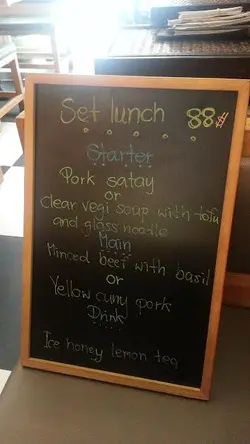 Set lunch 88
Starter
Pork satay
or
Clear vegi soup with tofu
and glass noodle
Main
Minced beef with basil
or
Yellow curry pork
Drink
Ice honey lemon tea